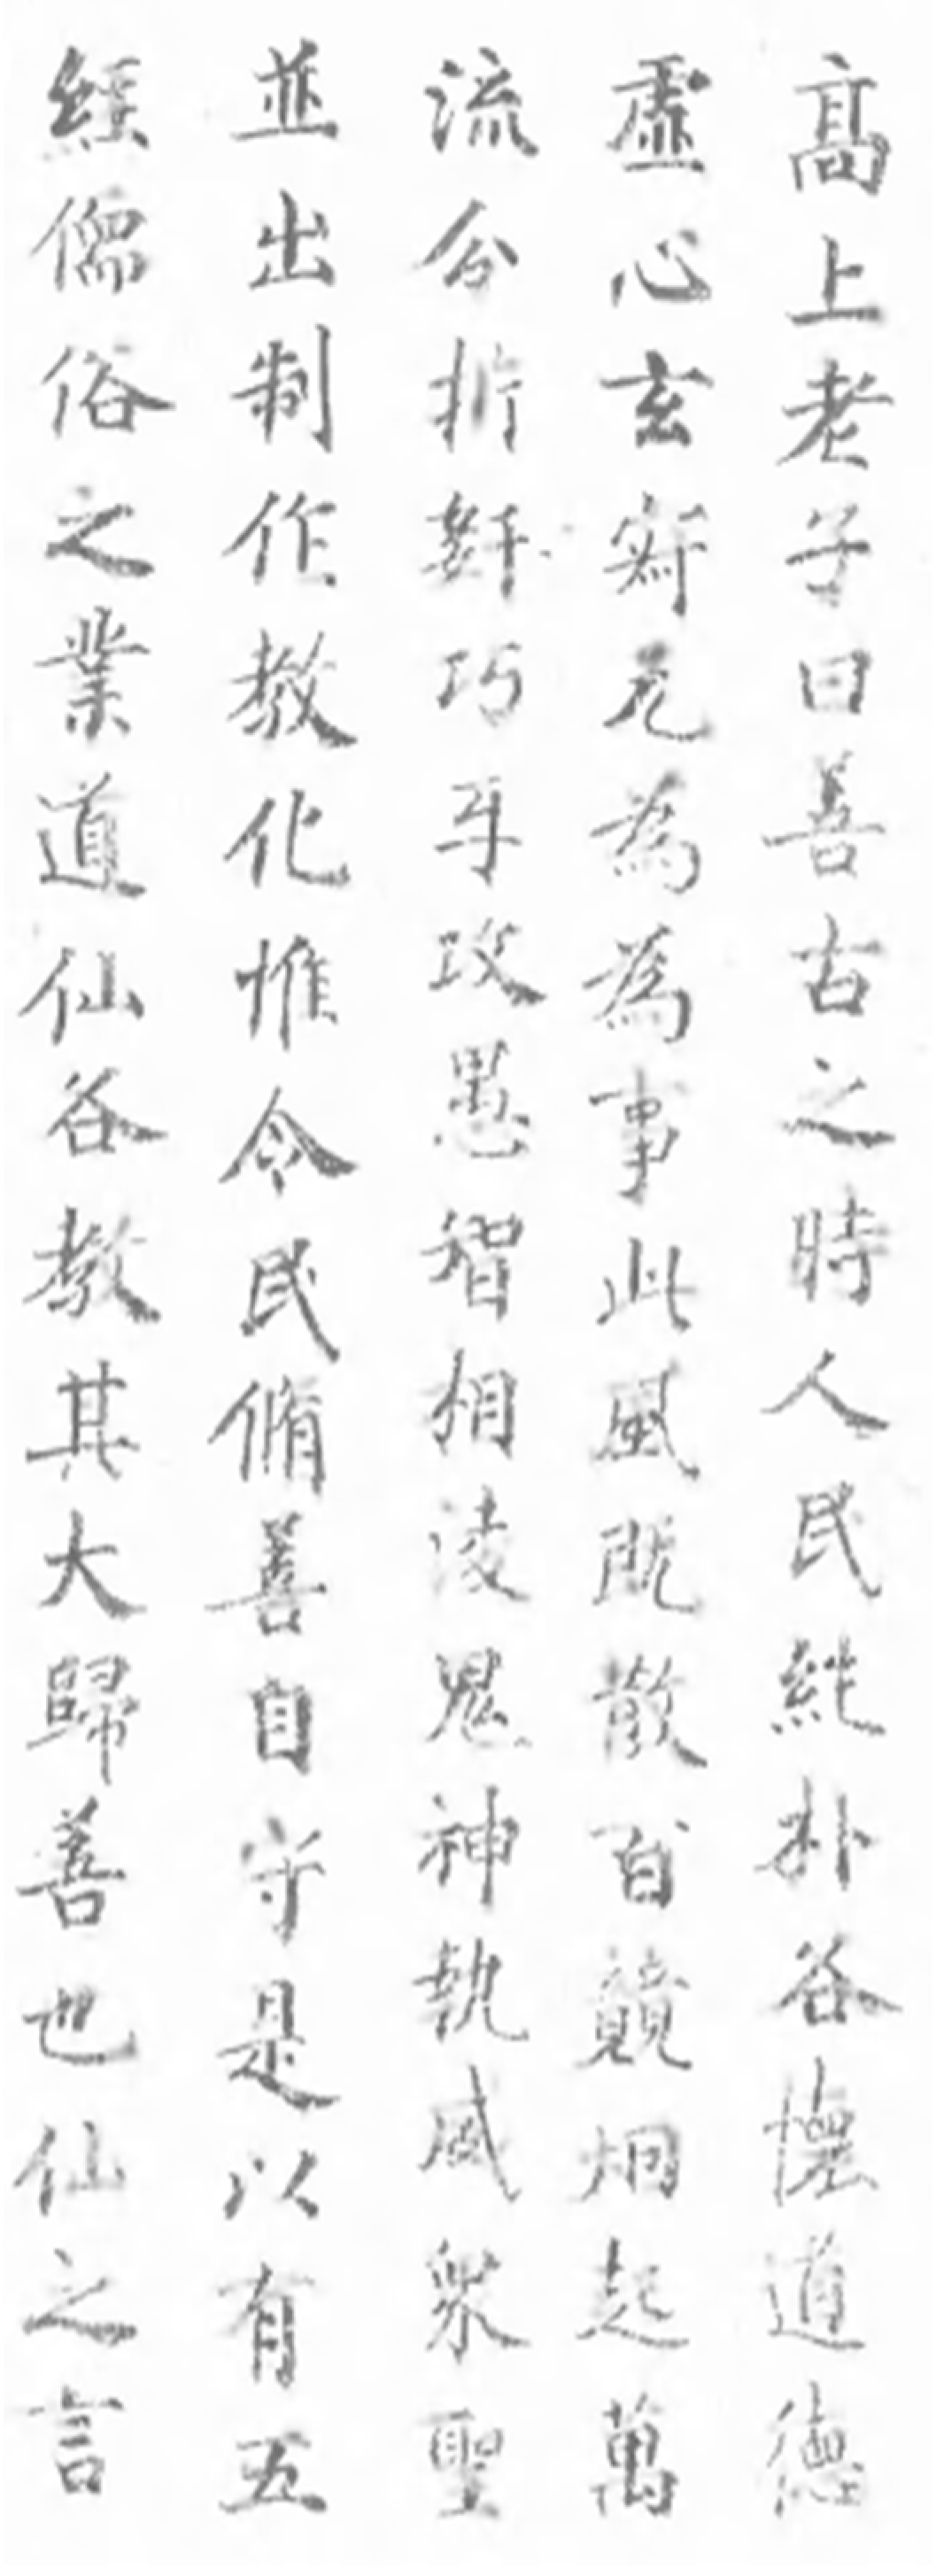 高上老子曰善古之時人民純朴各懷道德
虛心玄寂无為為事此風既散百競烱起萬
流分析姧巧互攻愚智相淩鬼神執威衆聖
並出制作教化惟令民脩善自守是以有五
經儒俗之業道仙各教其大歸善也仙之言